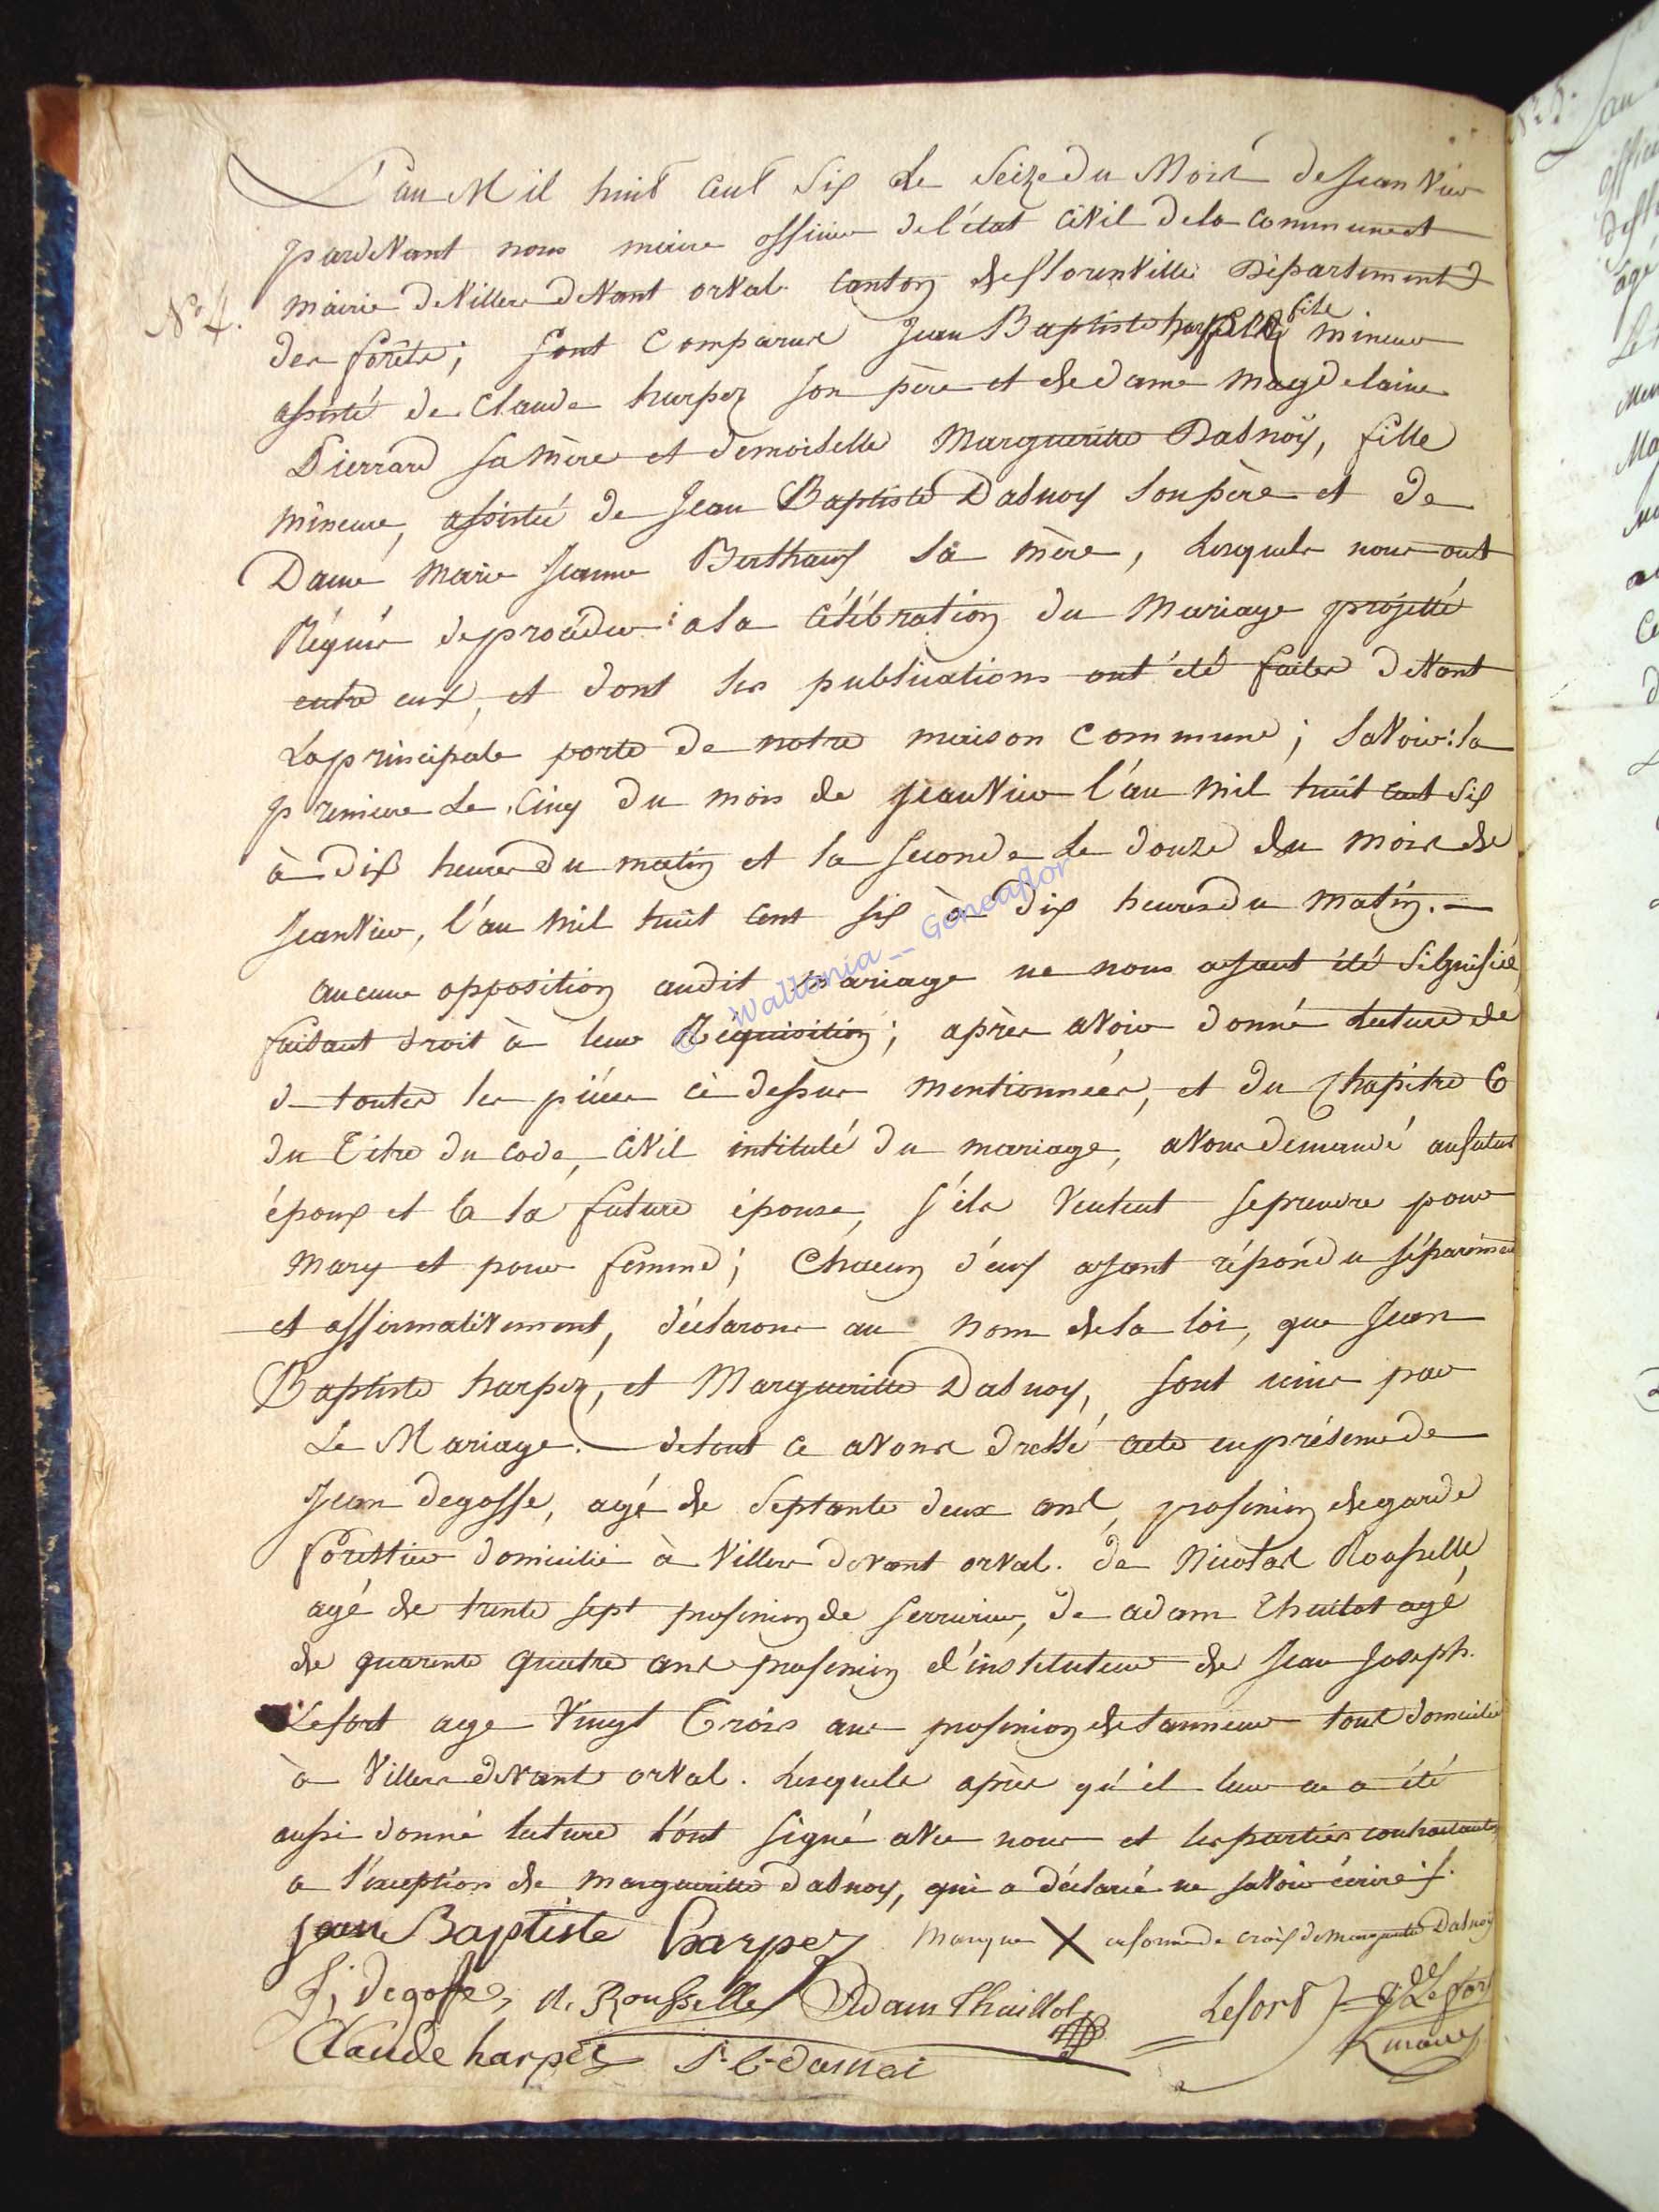 L'an Mil huit cent six Le Seize du Mois de Jeanvier
pardevant nous maire officier de l'état civil de la commune et
N.º 4. mairie de Villers devant orval. canton de florenville Département
des forêts; sont Comparus Jean Baptiste harpez fils mineur
assisté de Claude harpez son père et de dame magdelaine
Pierrard sa mère et demoiselle Margueritte Dasnoÿ, fille
mineure, assistée de Jean Baptiste Dasnoy son père et de
Dame marie Jeanne Berthaux sa mère, Lesquels nous ont
Réquis de procéder à la célébration du Mariage projetté
entre eux, et dont les publications ont été faites devant
La principale porte de notre maison Commune; Savoir: la
premiere Le Cinq du mois de jeanvier l'an mil huit cent six
à dix heures du matin et la seconde Le douze du mois de
jeanvier, l'an mil huit cent six à dix heures du matin.
aucune opposition audit mariage ne nous ayant été signifiée,
faisant droit à leur Requisition; après avoir donné lecture de
de toutes les pièces ci dessus mentionnées, et du Chapitre 6
du Titre du code, civil intitulé du mariage, avons demandé au futur
époux et à la future épouse, s'ils veulent se prendre pour
mary et pour femme; Chacun d'eux ayant répondu séparément
et affirmativement, déclarons au nom de la loi, que Jean
Baptiste harpez, et Margueritte Dasnoy, sont unis par
Le Mariage. de tout ce avons dressé acte en présence de
Jean degosse, agé de septante deux ans, profession de garde
forestier domicilié à Villers devant orval. de Nicolas Rousselle,
agé de trente sept profession de serrurier, de adam Thuilot agé
de quarente quatre ans profession d'instituteur de Jean Joseph.
Lefort age vingt Trois ans profession de tanneur tous domiciliés
à Villers devant orval. Lesquels après qu'il leur en a été
aussi donné lecture l'ont signé avec nous et les parties contractantes
a l'exception de margueritte Dasnoy, qui a déclaré ne savoir écrire.
jean Baptiste harpez Marque X en forme de croix de Margueritte Dasnoÿ
J; degosse, N. Rousselle Adam Thuillot Lefort
Claude harpez
© Wallonia -- Geneaflor